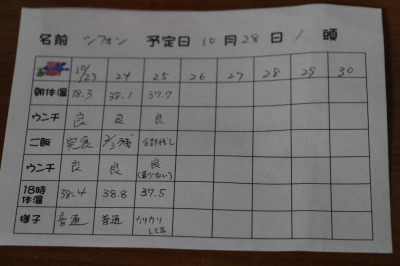 名前 シフォン 予定日 10月28日 1 頭
10/23 24 25 26 27 28 29 30
朝体温 38.3 38.1 37.7
ウンチ 良 良 良
ご飯 完食 2/3残 全部残し
ウンチ 良 良 良
18時体温 38.4 38.8 37.5
様子 普通 普通 カリカリしてる